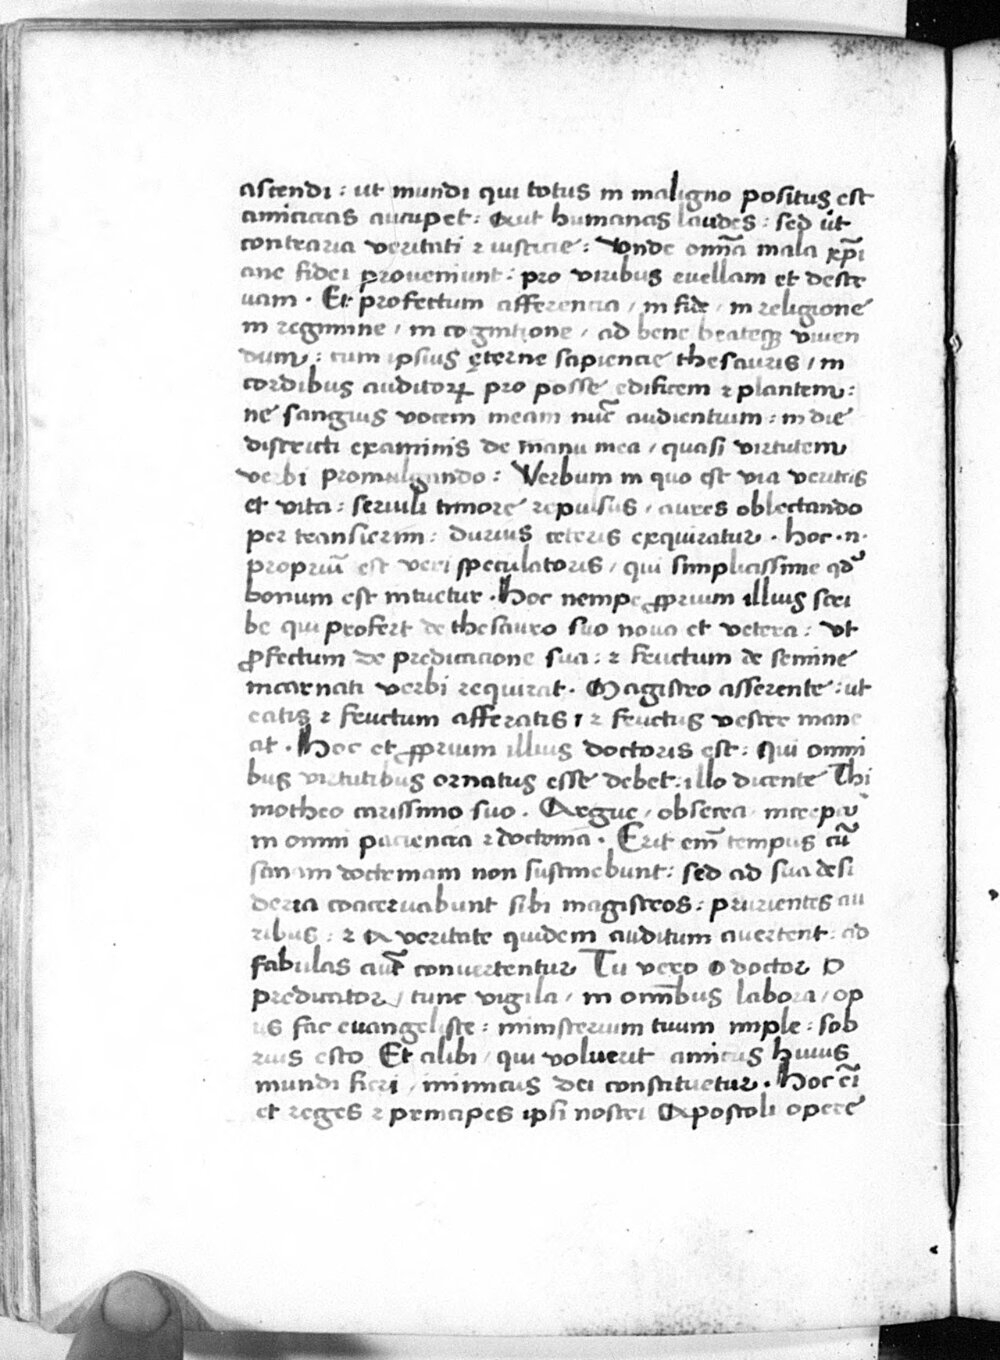 ascendi : ut mundi qui totus in maligno positus est
amicicias aucupet : Aut humanas laudes : sed ut
contraria veritati ⁊ iusticie : Unde om̅ia mala xp̅i
ane fidei proveniunt : pro viribus evellam et destr
uam . Et profectum afferencia / in fide / in religione
in regimine / in cognitione / ad bene beateqꝫ viven
dum : cum ipsius ęterne sapiencie thesauris / in
cordibus auditoꝝ pro posse edificem ⁊ plantem :
ne sanguis vocem meam nu̅c audientium : in die
districti examinis de manu mea / quasi virtutem
verbi promulgando : Verbum in quo est via veritas
et vita : servili timore repulsus / aures oblectando
per transierim : durius ceteris exquiratur . Hoc .n.
propriu̅ est veri speculatoris / qui simplicissime qd̕
bonum est intuetur . Hoc nempe ꝓprium illius scri
be qui profert de thesauro suo nova et vetera : Ut
ꝓfectum de predicacione sua : ⁊ fructum de semine
incarnati verbi requirat . Magistro asserente : ut
eatis ⁊ fructum afferatis / ⁊ fructus vester mane
at . Hoc et ꝓprium illius doctoris est : qui omni
bus virtutibus ornatus esse debet : illo dicente Thi
motheo carissimo suo . Argue / obsecra / increpa
in omni paciencia ⁊ doctrina . Erit em̅ tempus cu̅
sanam doctrinam non sustinebunt : sed ad sua desi
deria coacervabunt sibi magistros : prurientes au
ribus : ⁊ A veritate quidem auditum avertent : ad
fabulas aut̅ convertentur Tu vero o doctor o
predicator / tunc vigila / in om̅ibus labora / op
us fac evangeliste : ministerium tuum imple : sob
rius esto Et alibi / qui voluerit amicus huius
mundi fieri / inimicus dei constituetur . Hoc ei̅
et reges ⁊ principes ipsi nostri Apostoli opere